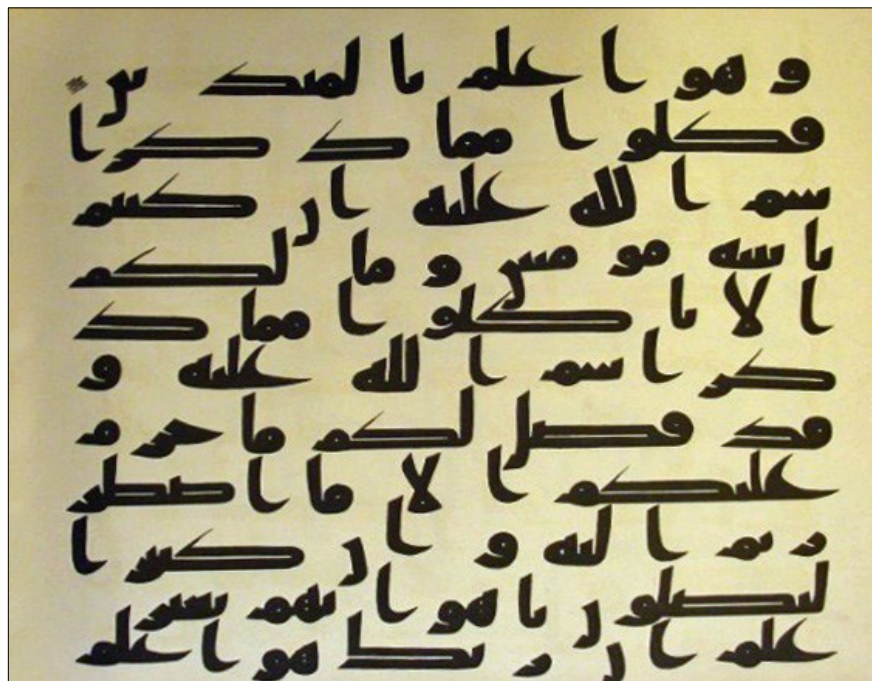 وهو اعلم بالمهتدين
فكلوا مما ذكر ا
سم الله عليه ان كنتم
بايته مومنين وما لكم
الا تاكلوا مما ذ
كر اسم الله عليه و
قد فصل لكم ما حرم
عليكم الا ما اضطر
رتم اليه وان كثيرا
ليضلون باهوايهم بغير
علم ان ربك هو اعلم